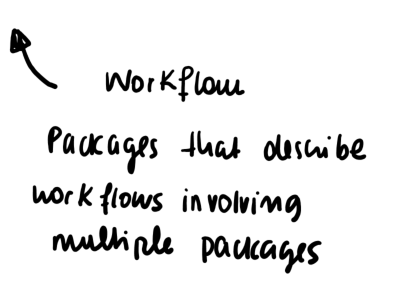 Workflow
Packages that describe
workflows involving
multiple packages